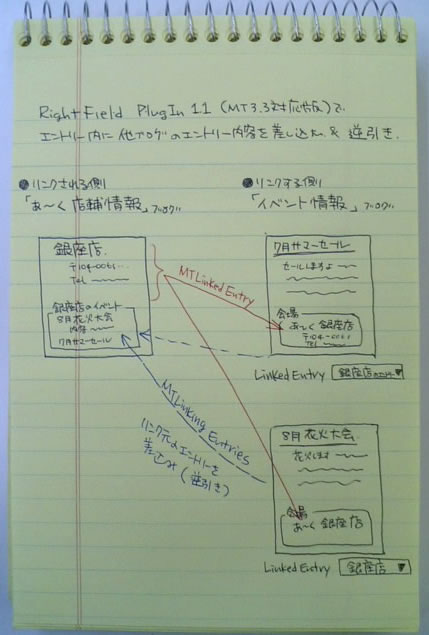 Right Field PlugIn 1.1 (MT3.3対応版)で
エントリー内に他ブログのエントリー内容を差し込み & 逆引き.
●リンクされる側
「あ〜く店舗情報」ブログ
銀座店
〒104-0061...
TEL
銀座店のイベント
8月花火大会
内容
7月サマーセール
●リンクする側
「イベント情報」ブログ
7月サマーセール
セールしますよ
会場
あ〜く銀座店
〒104-0061
TEL
Linked Entry 銀座店 ▼
MTLinked Entry
MTLinking Entries
リンク元のエントリーを
差込み(逆引き)
8月花火大会
花火します
会場
あ〜く銀座店
Linked Entry 銀座店 ▼